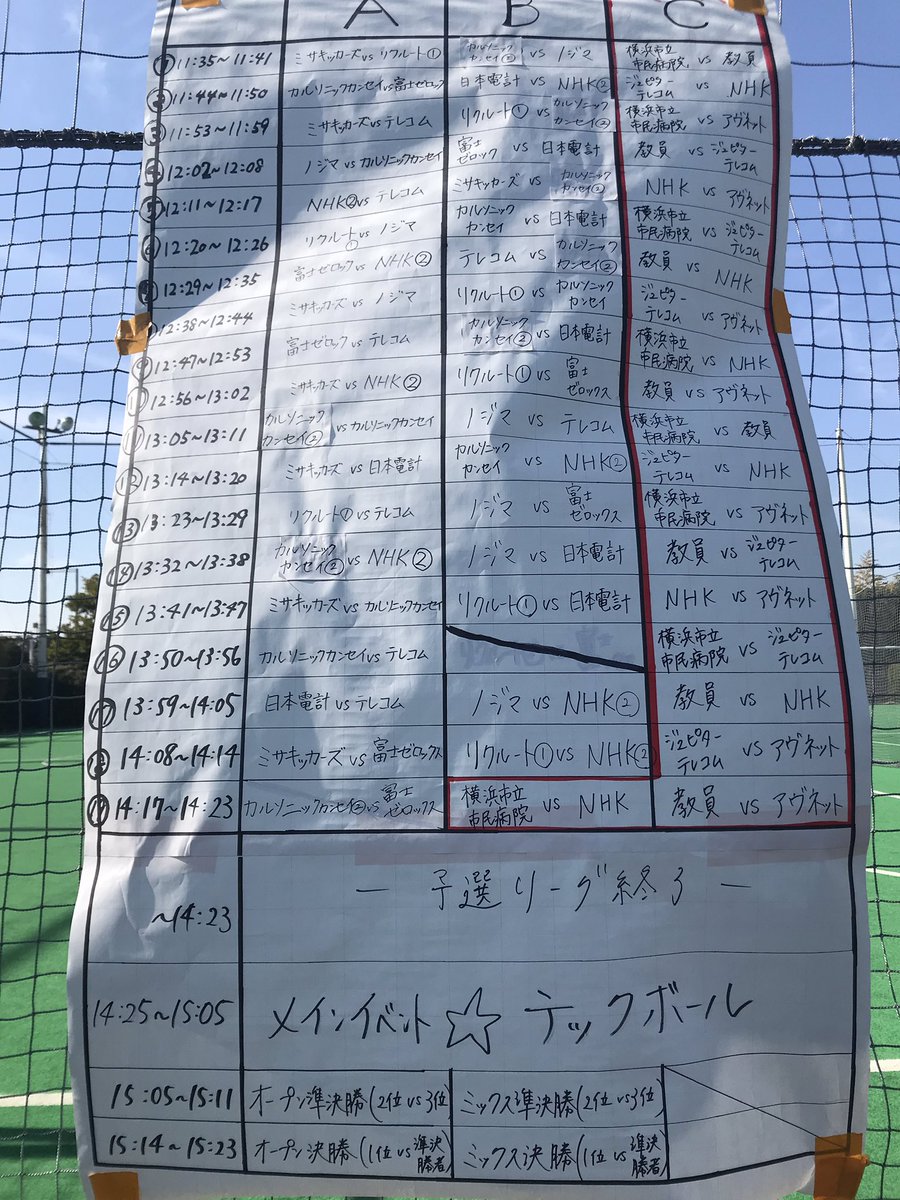 A B C
① 11:35～11:41 ミサキッカーズ vs リクルート① カルソニックカンセイ② vs ノジマ 横浜市立市民病院 vs 教員
② 11:44～11:50 カルソニックカンセイvs富士ゼロックス 日本電計 vs NHK② ジュピターテレコム vs NHK
③ 11:53～11:59 ミサキッカーズvsテレコム リクルート① vs カルソニックカンセイ② 横浜市立市民病院 vs アヴネット
④ 12:02～12:08 ノジマ vs カルソニックカンセイ 富士ゼロック vs 日本電計 教員 vs ジュピターテレコム
⑤ 12:11～12:17 NHK② vs テレコム ミサキッカーズ vs カルソニックカンセイ② NHK vs アヴネット
⑥ 12:20～12:26 リクルート① vs ノジマ カルソニックカンセイ vs 日本電計 横浜市立市民病院 vs ジュピターテレコム
⑦ 12:29～12:35 富士ゼロックス vs NHK② テレコム vs カルソニックカンセイ② 教員 vs NHK
12:38～12:44 ミサキッカーズ vs ノジマ リクルート① vs カルソニックカンセイ ジュピターテレコム vs アヴネット
⑨ 12:47～12:53 富士ゼロックス vs テレコム カルソニックカンセイ② vs 日本電計 横浜市立市民病院 vs NHK
12:56～13:02 ミサキッカーズ vs NHK② リクルート① vs 富士ゼロックス 教員 vs アヴネット
⑪ 13:05～13:11 カルソニックカンセイ② vs カルソニックカンセイ ノジマ vs テレコム 横浜市立市民病院 vs 教員
⑫ 13:14～13:20 ミサキッカーズ vs 日本電計 カルソニックカンセイ vs NHK② ジュピターテレコム vs NHK
⑬ 13:23～13:29 リクルート① vs テレコム ノジマ vs 富士ゼロックス 横浜市立市民病院 vs アヴネット
⑭ 13:32～13:38 カルソニックカンセイ② vs NHK② ノジマ vs 日本電計 教員 vs ジュピターテレコム
⑮ 13:41～13:47 ミサキッカーズ vs カルソニックカンセイ リクルート① vs 日本電計 NHK vs アヴネット
⑯ 13:50～13:56 カルソニックカンセイ vs テレコム 横浜市立市民病院 vs ジュピターテレコム
⑰ 13:59～14:05 日本電計 vs テレコム ノジマ vs NHK② 教員 vs NHK
⑱ 14:08～14:14 ミサキッカーズ vs 富士ゼロックス リクルート① vs NHK② ジュピターテレコム vs アヴネット
⑲ 14:17～14:23 カルソニックカンセイ② vs 富士ゼロックス 横浜市立市民病院 vs NHK 教員 vs アヴネット
～14:23 ― 予選リーグ終了 ―
14:25～15:05 メインイベント☆テックボール
15:05～15:11 オープン準決勝(2位 vs 3位) ミックス準決勝(2位 vs 3位)
15:14～15:23 オープン決勝(1位 vs 準決勝者) ミックス決勝(1位 vs 準決勝者)